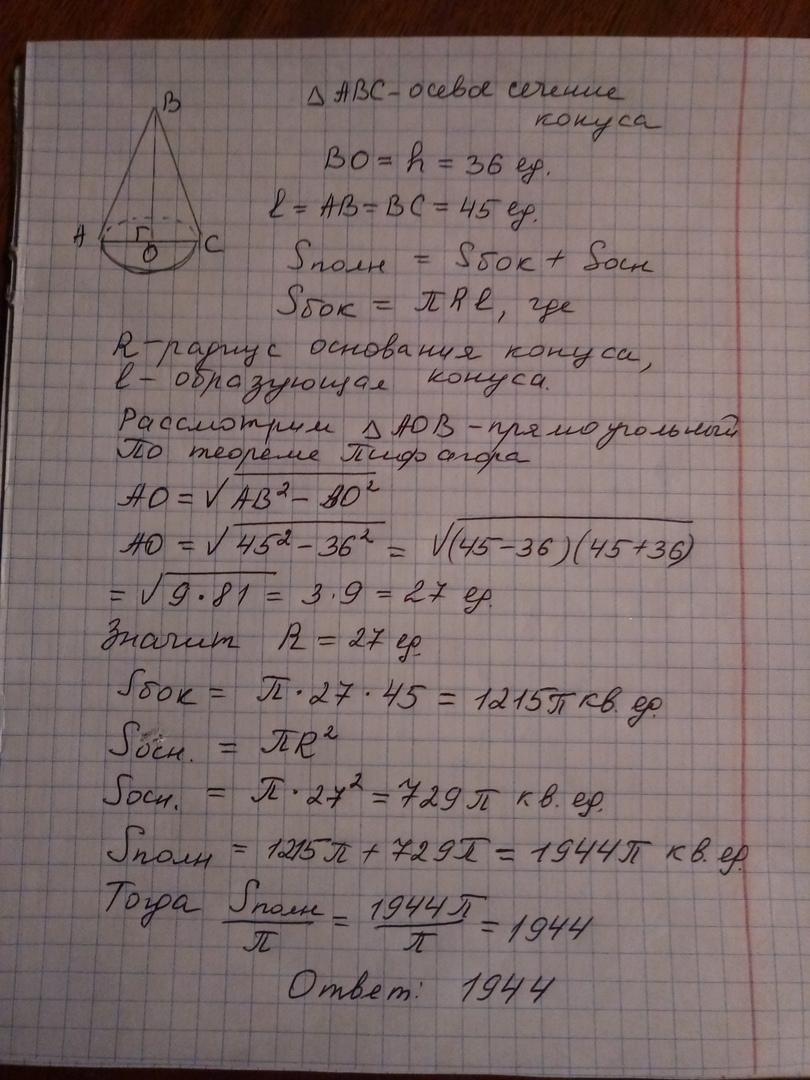 B
A
C
O
△ ABC - осевое сечение
конуса
BO = h = 36 ед.
l = AB = BC = 45 ед.
Sполн = Sбок + Sосн
Sбок = πRl, где
R - радиус основания конуса,
l - образующая конуса.
Рассмотрим △ AOB - прямоугольный
По теореме Пифагора
AO = √(AB² - BO²)
AO = √(45² - 36²) = √((45-36)(45+36))
= √(9·81) = 3·9 = 27 ед.
Значит R = 27 ед.
Sбок = π·27·45 = 1215π кв. ед.
Sосн. = πR²
Sосн. = π·27² = 729π кв. ед.
Sполн = 1215π + 729π = 1944π кв. ед
Тогда Sполн/π = 1944π/π = 1944
Ответ: 1944